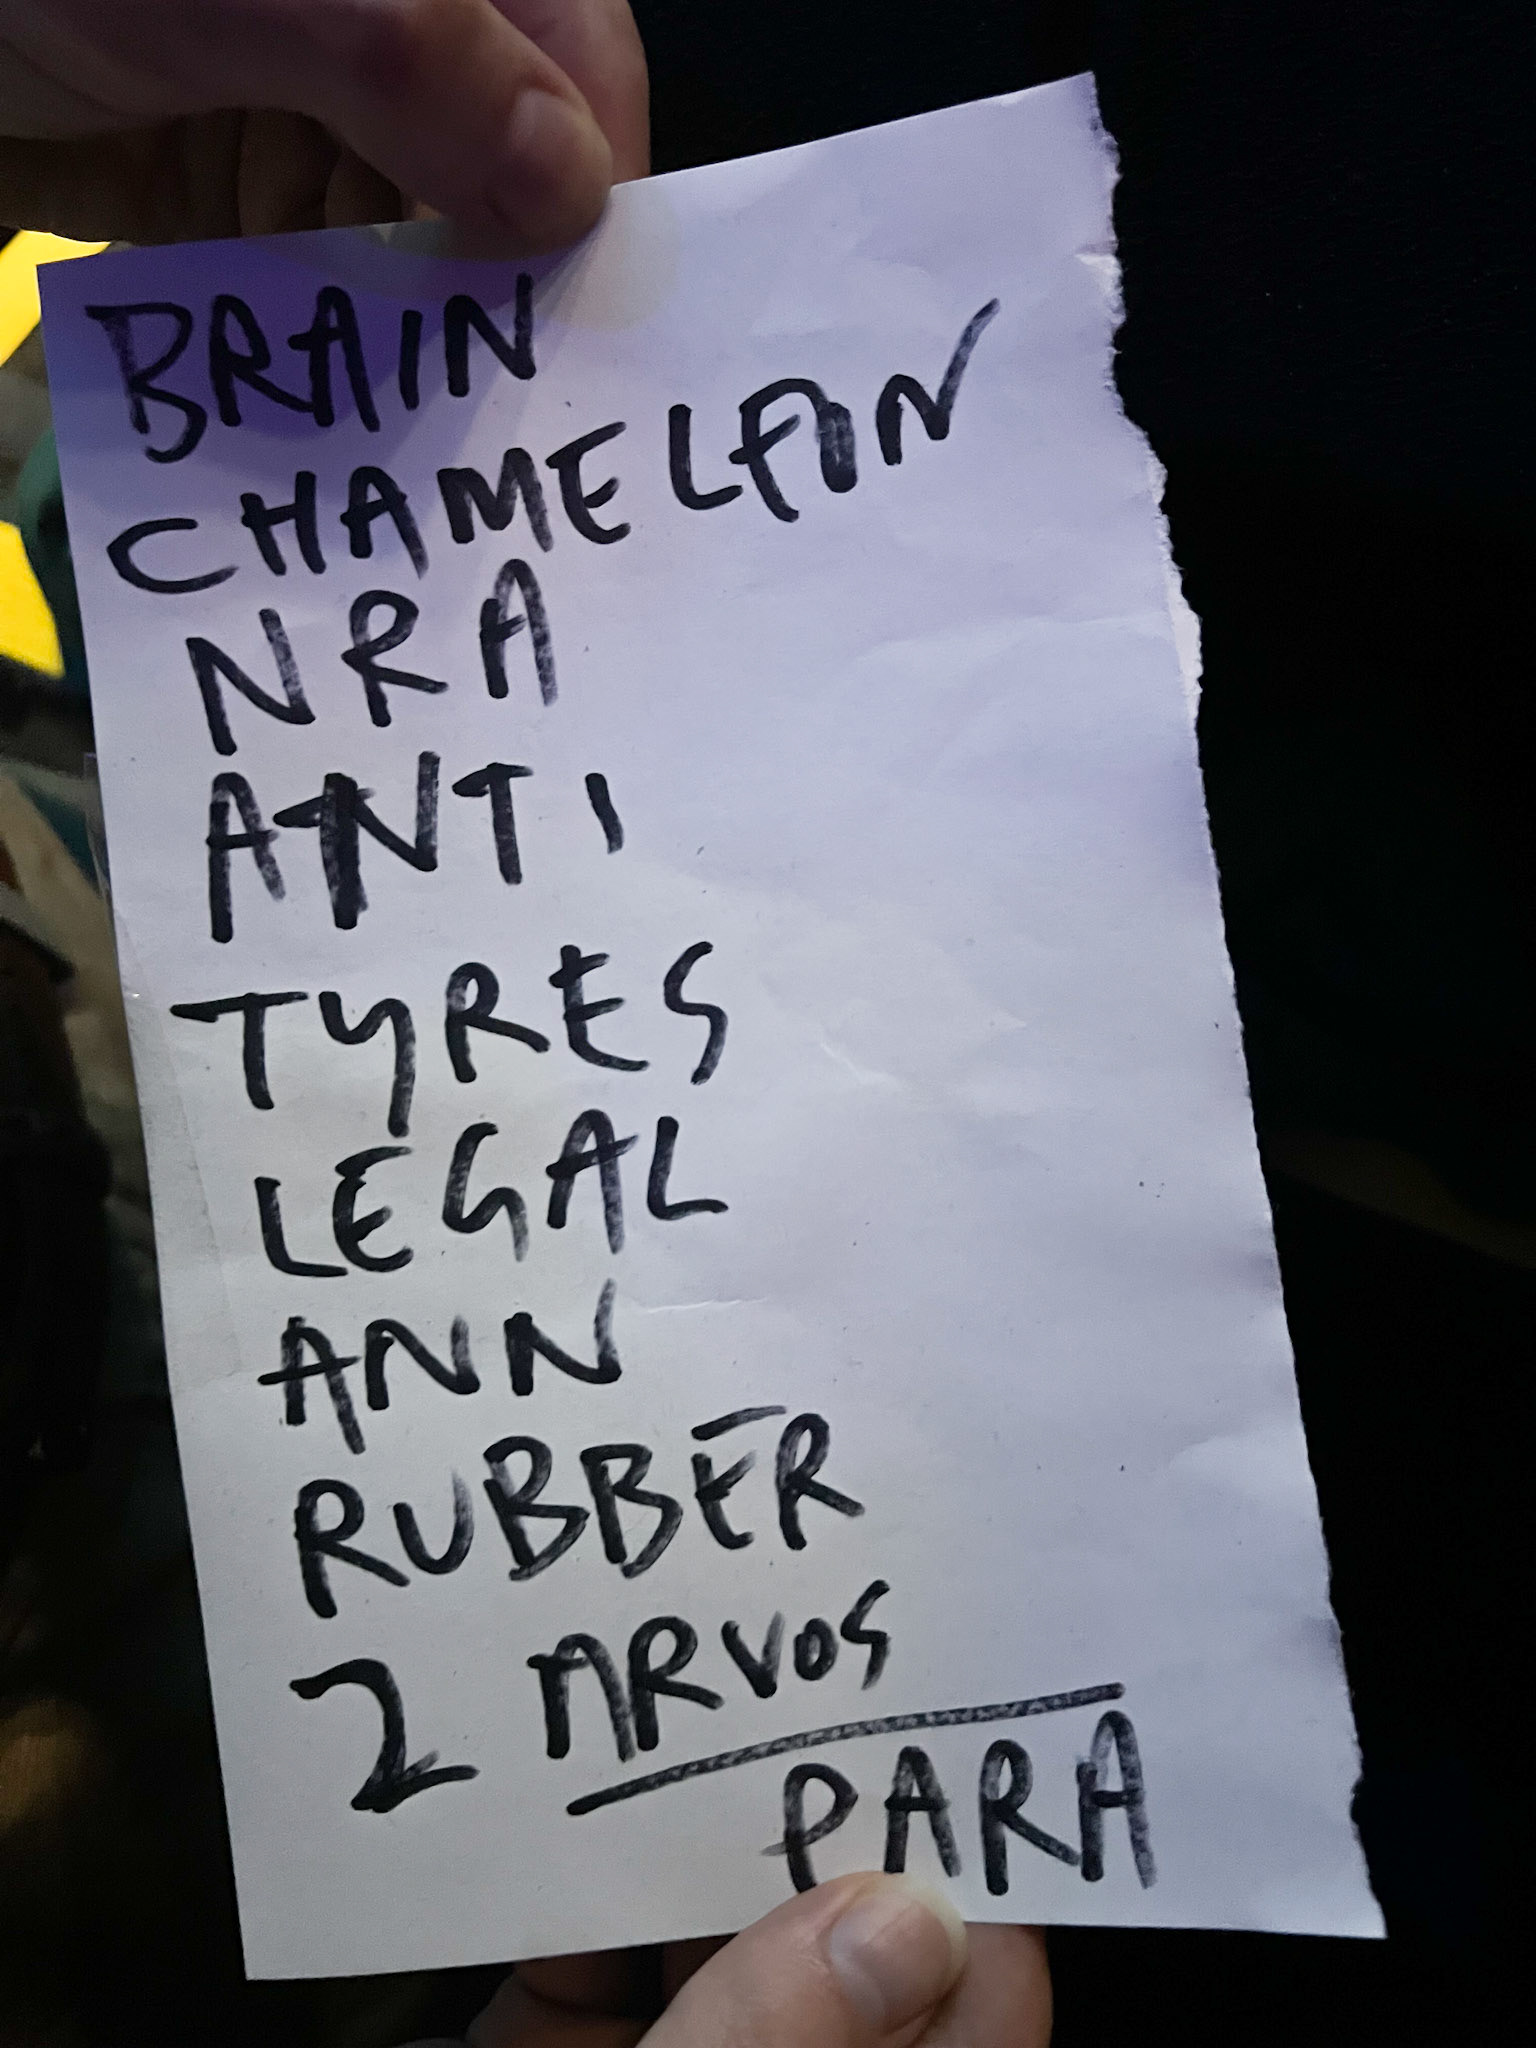 BRAIN
CHAMELEON
NRA
ANTI
TYRES
LEGAL
ANN
RUBBER
2 ARVOS
PARA